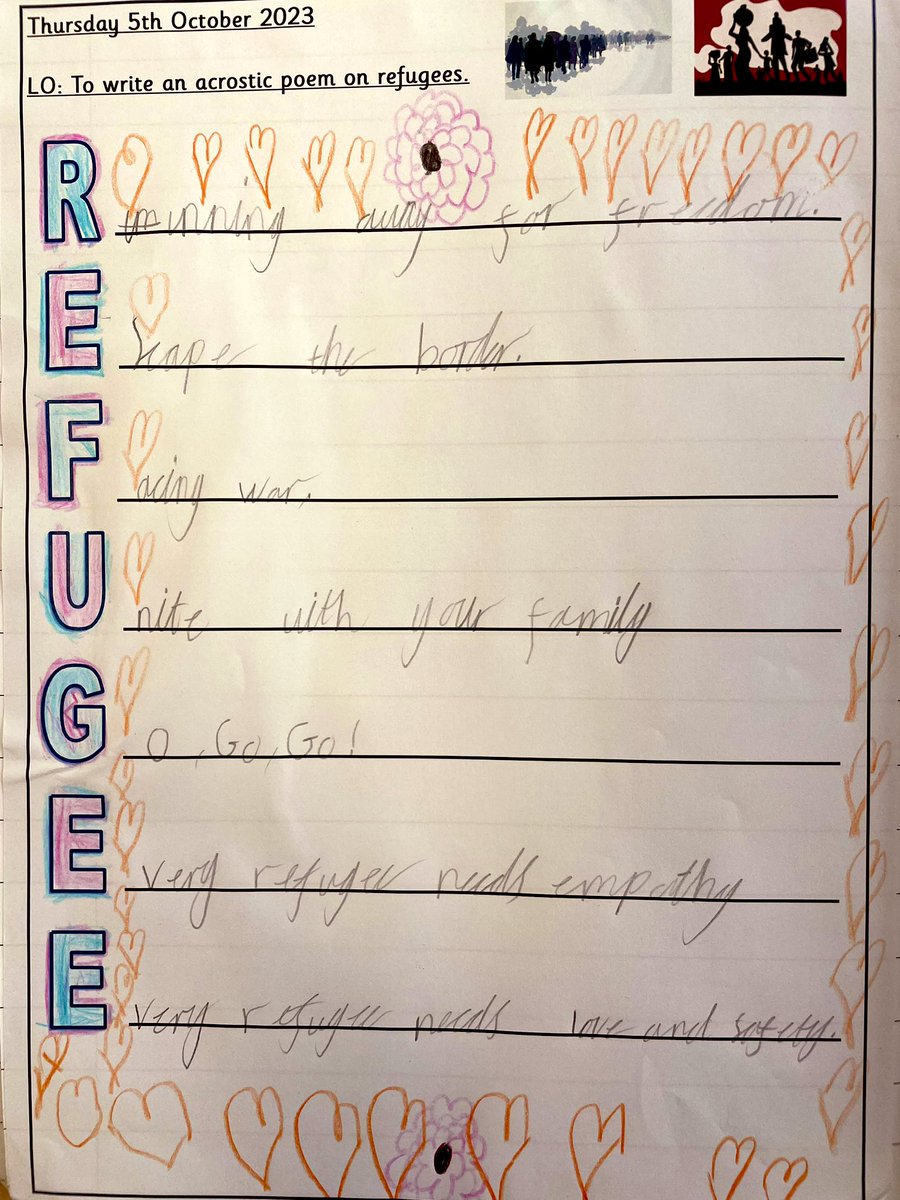 Thursday 5th October 2023
LO: To write an acrostic poem on refugees.
Running away for freedom.
Escape the border.
Facing war.
Unite with your family
GO, Go, Go!
Every refugee needs empathy
Every refugee needs love and safety.